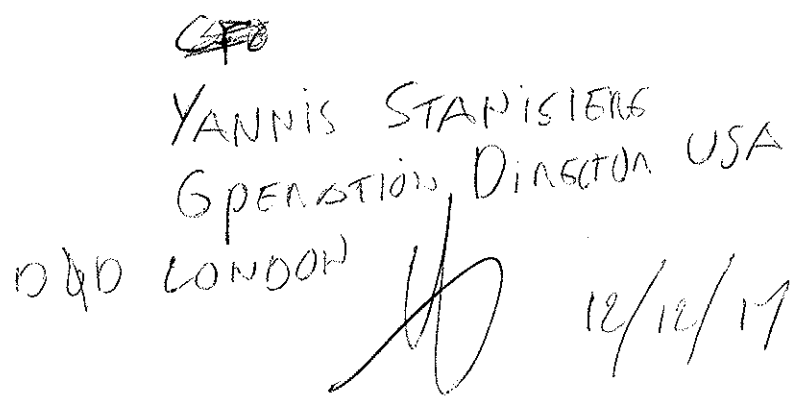 YANNIS STANISIERE
OPERATION DIRECTOR USA
D&D LONDON
12/12/17